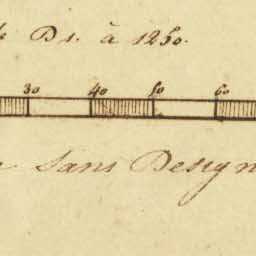 D 1. à 1250.
30 40 50 60
Sans Design